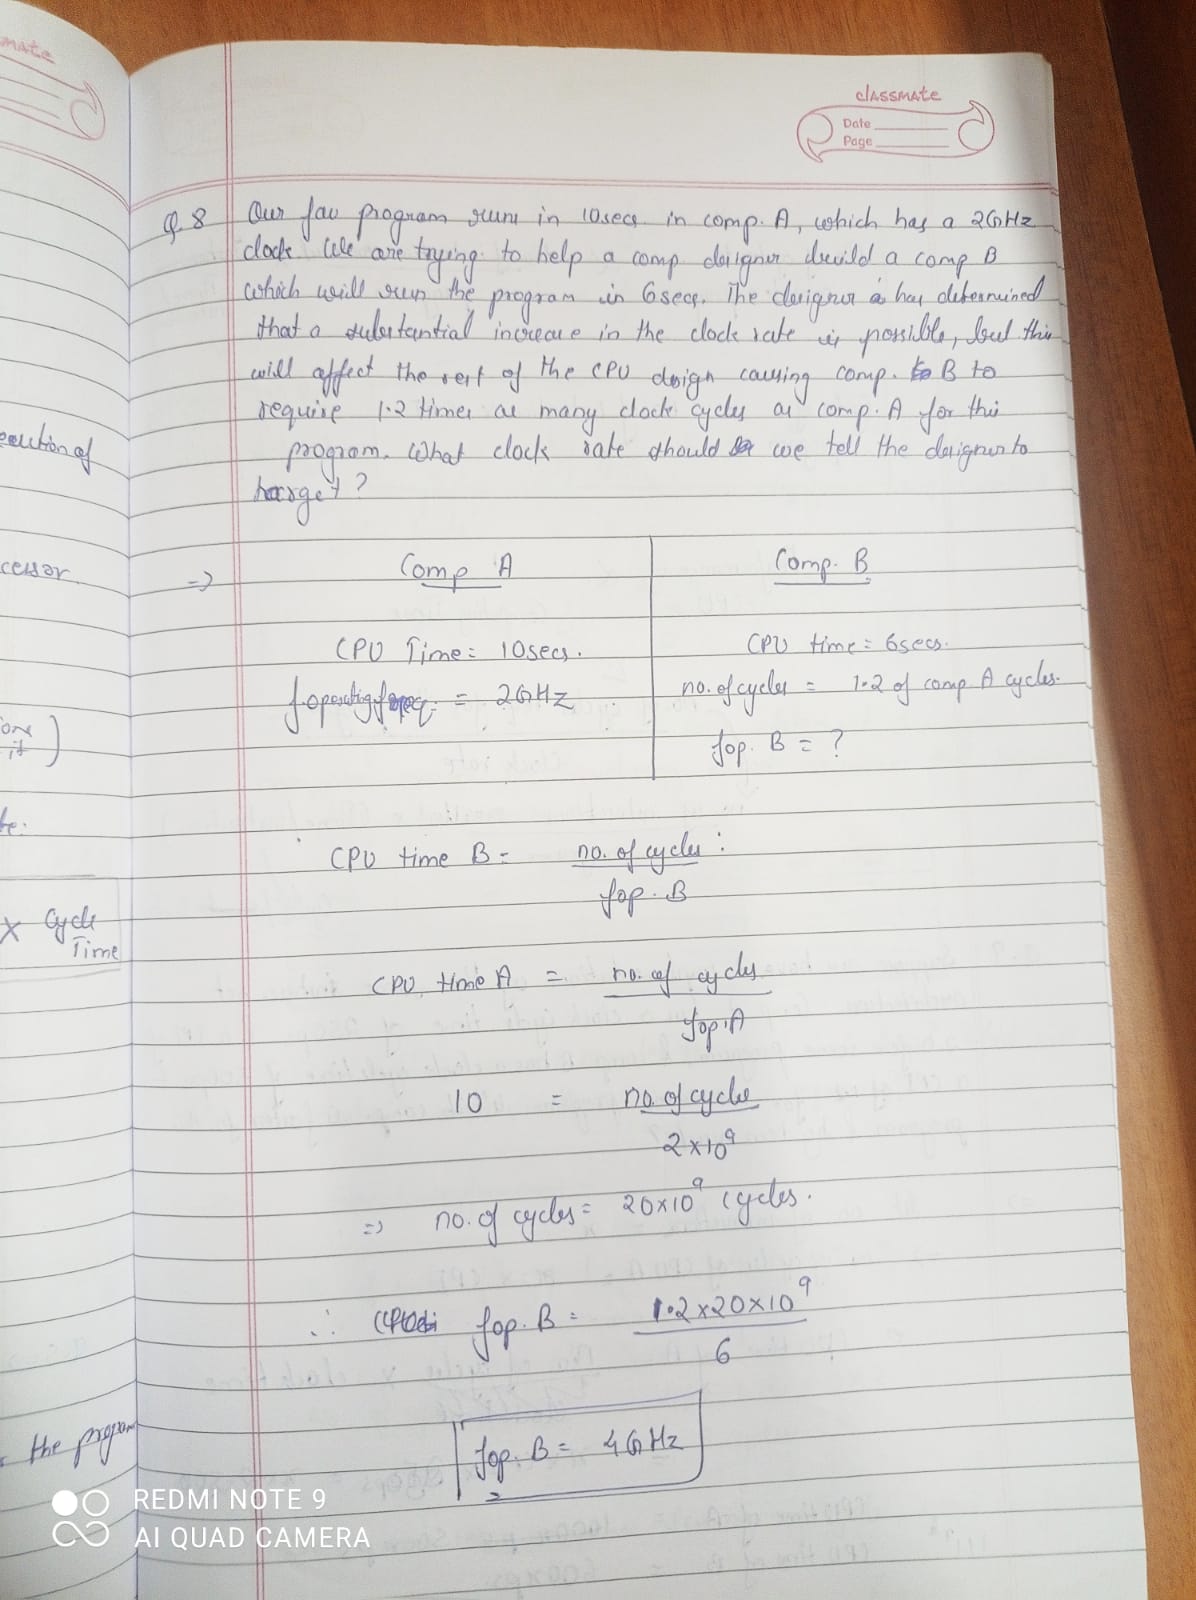 mate
classmate
Date
Page
Q.8 Our fav program runs in 10secs in comp. A, which has a 2GHz
clock. We are trying to help a comp designer build a comp B
which will run the program in 6secs. The designer has determined
that a substantial increase in the clock rate is possible, but this
will affect the rest of the CPU design causing comp. B to
require 1.2 times as many clock cycles as comp. A for this
program. What clock rate should we tell the designer to
target?
ecution of
cessor.
=> Comp A
Comp. B
CPU Time = 10secs.
CPU time = 6secs.
f operating freq. = 2GHz
no. of cycles = 1.2 of comp A cycles.
fop. B = ?
CPU time B = no. of cycles
fop. B
X Cycle
Time
CPU time A = no. of cycles
fop. A
10 = no. of cycle
2×10⁹
=> no. of cycles = 20×10⁹ cycles.
∴ fop. B = 1.2×20×10⁹
6
fop. B = 4GHz
the program
REDMI NOTE 9
AI QUAD CAMERA